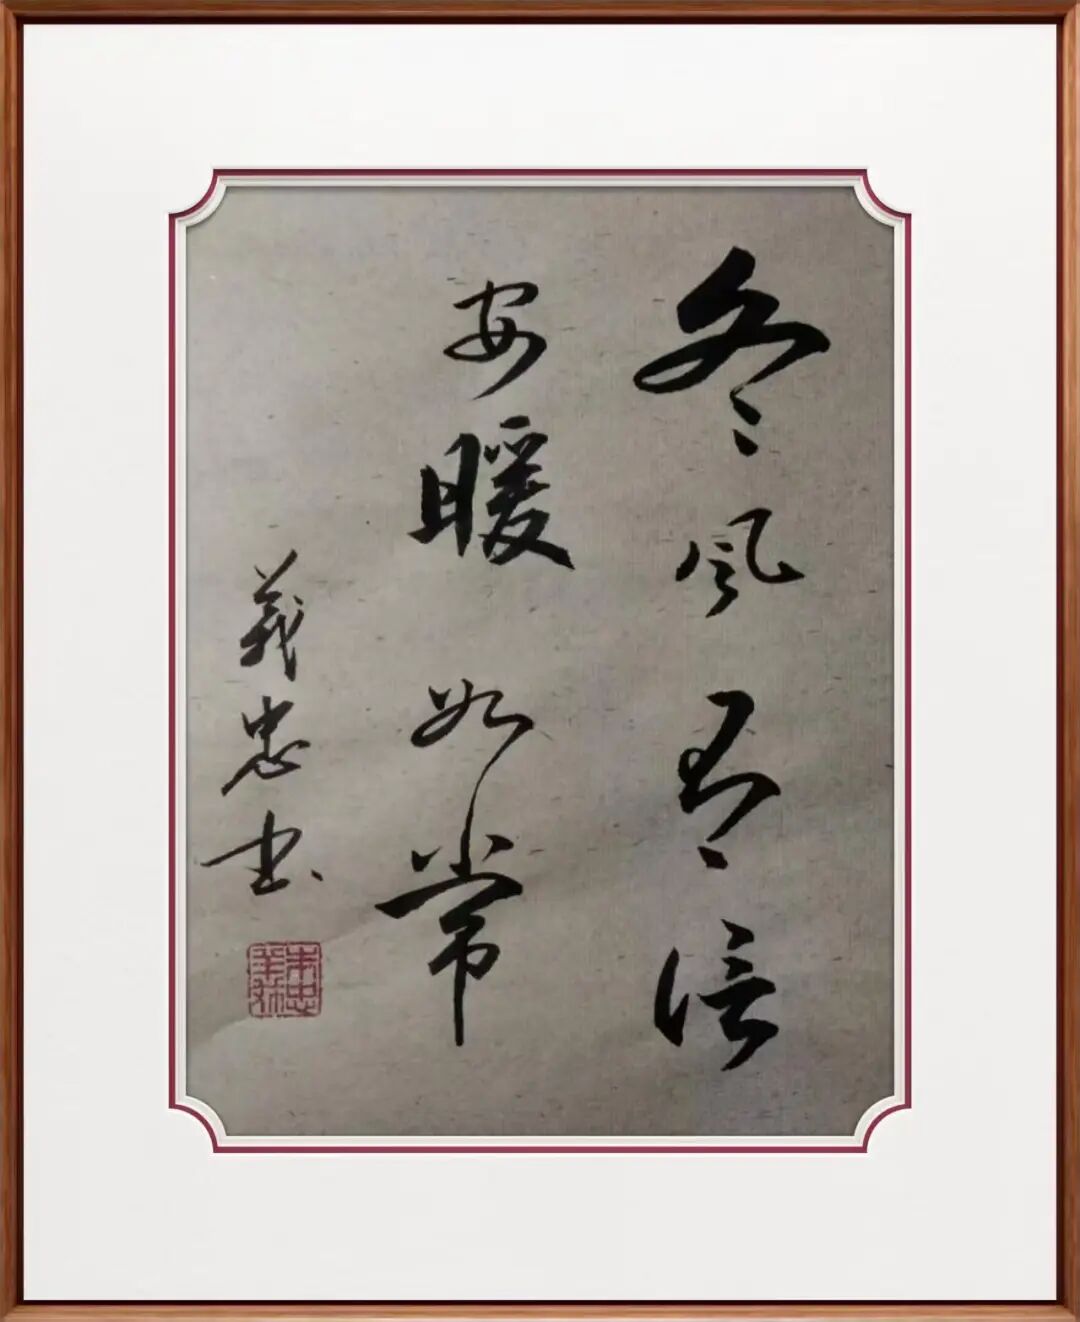 冬风有信
安暖如常
義忠书